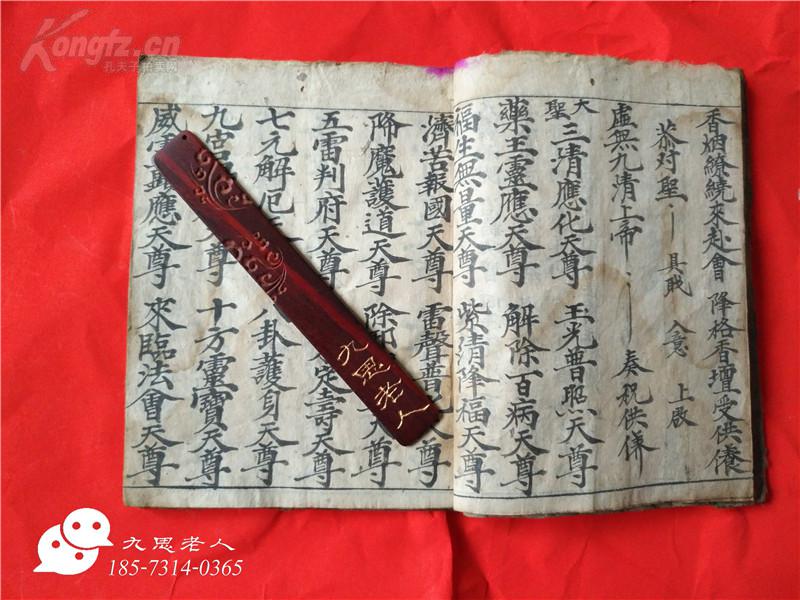 Kongfz.cn
孔夫子拍卖网
香烟繚繞來赴會 降格香壇受供養
恭对聖 具戝 入意 上啟
虛無九清上帝 奏祝供養
大聖
三清應化天尊 玉光普照天尊
藥王靈應天尊 解除百病天尊
福生無量天尊 紫清降福天尊
濟苦報國天尊 雷聲普天尊
降魔護道天尊 除
五雷判府天尊 定壽天尊
七元解厄 八卦護身天尊
九宮 天尊 十方靈寶天尊
威靈顯應天尊 來臨法會天尊
九思老人
九思老人
185-7314-0365